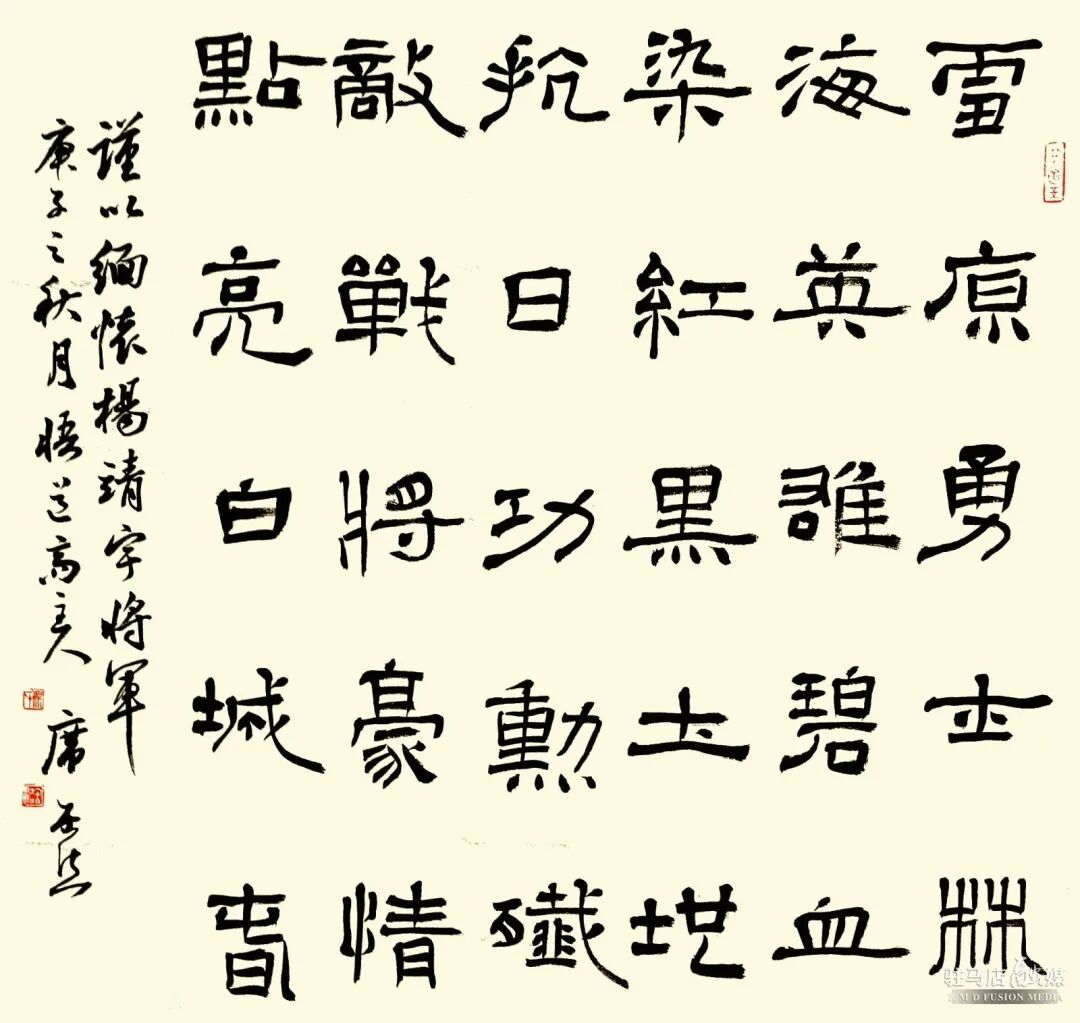 雪原勇士林
海英雄碧血
染紅黑土地
抗日功勳殲
敵戰將豪情
點亮白城春
謹以緬懷楊靖宇將軍
庚子之秋月悟道斋主人 席
驻马店融媒
Z.M.D FUSION MEDIA